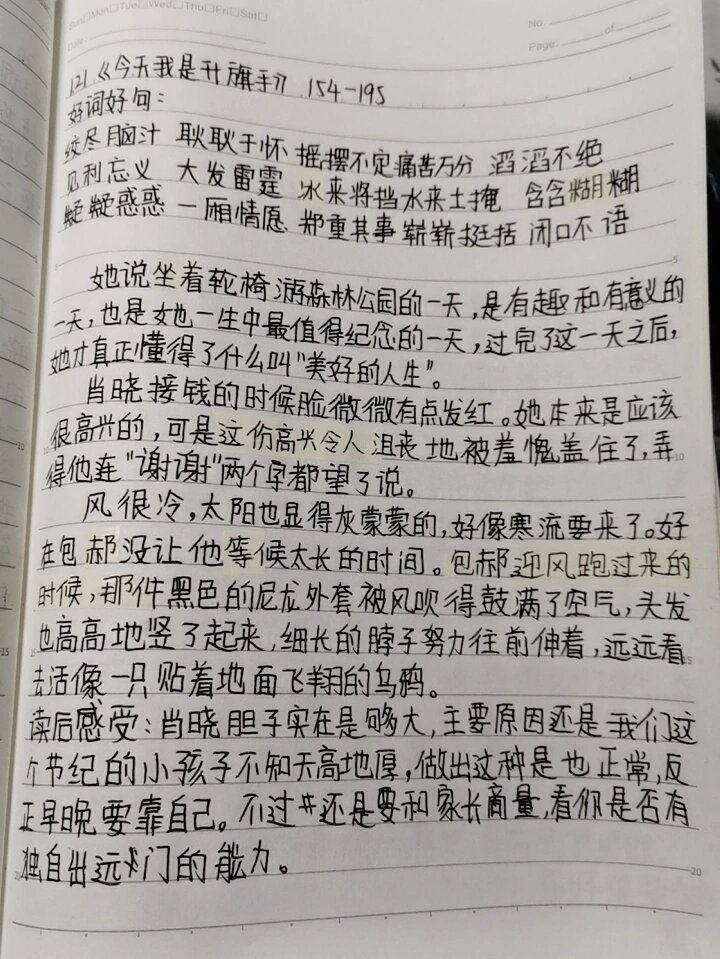 Sun□Mon□Tue□Wed□Thu□Fri□Sat□
No.
Date:
Page. of
121《今天我是升旗手》 154-195
好词好句：
绞尽脑汁 耿耿于怀 摇摆不定 痛苦万分 滔滔不绝
见利忘义 大发雷霆 水来将挡水来土掩 含含糊糊
疑疑惑惑 一厢情愿 郑重其事 崭崭挺括 闭口不语
她说坐着轮椅游森林公园的一天，是有趣和有意义的
一天，也是她一生中最值得纪念的一天，过完了这一天之后，
她才真正懂得了什么叫“美好的人生”。
肖晓接钱的时候脸微微有点发红。她本来是应该
很高兴的，可是这份高兴令人沮丧地被羞愧盖住了，弄
得他连“谢谢”两个字都望了说。
风很冷，太阳也显得灰蒙蒙的，好像寒流要来了。好
在包郝没让他等候太长的时间。包郝迎风跑过来的
时候，那件黑色的尼龙外套被风吹得鼓满了空气，头发
也高高地竖了起来，细长的脖子努力往前伸着，远远看
去活像一只贴着地面飞翔的乌鸦。
读后感受：肖晓胆子实在是够大，主要原因还是我们这
个节纪的小孩子不知天高地厚，做出这种是也正常，反
正早晚要靠自己。不过还是要和家长商量，看你是否有
独自出远门的能力。
5
5
10
10
15
15
20
20